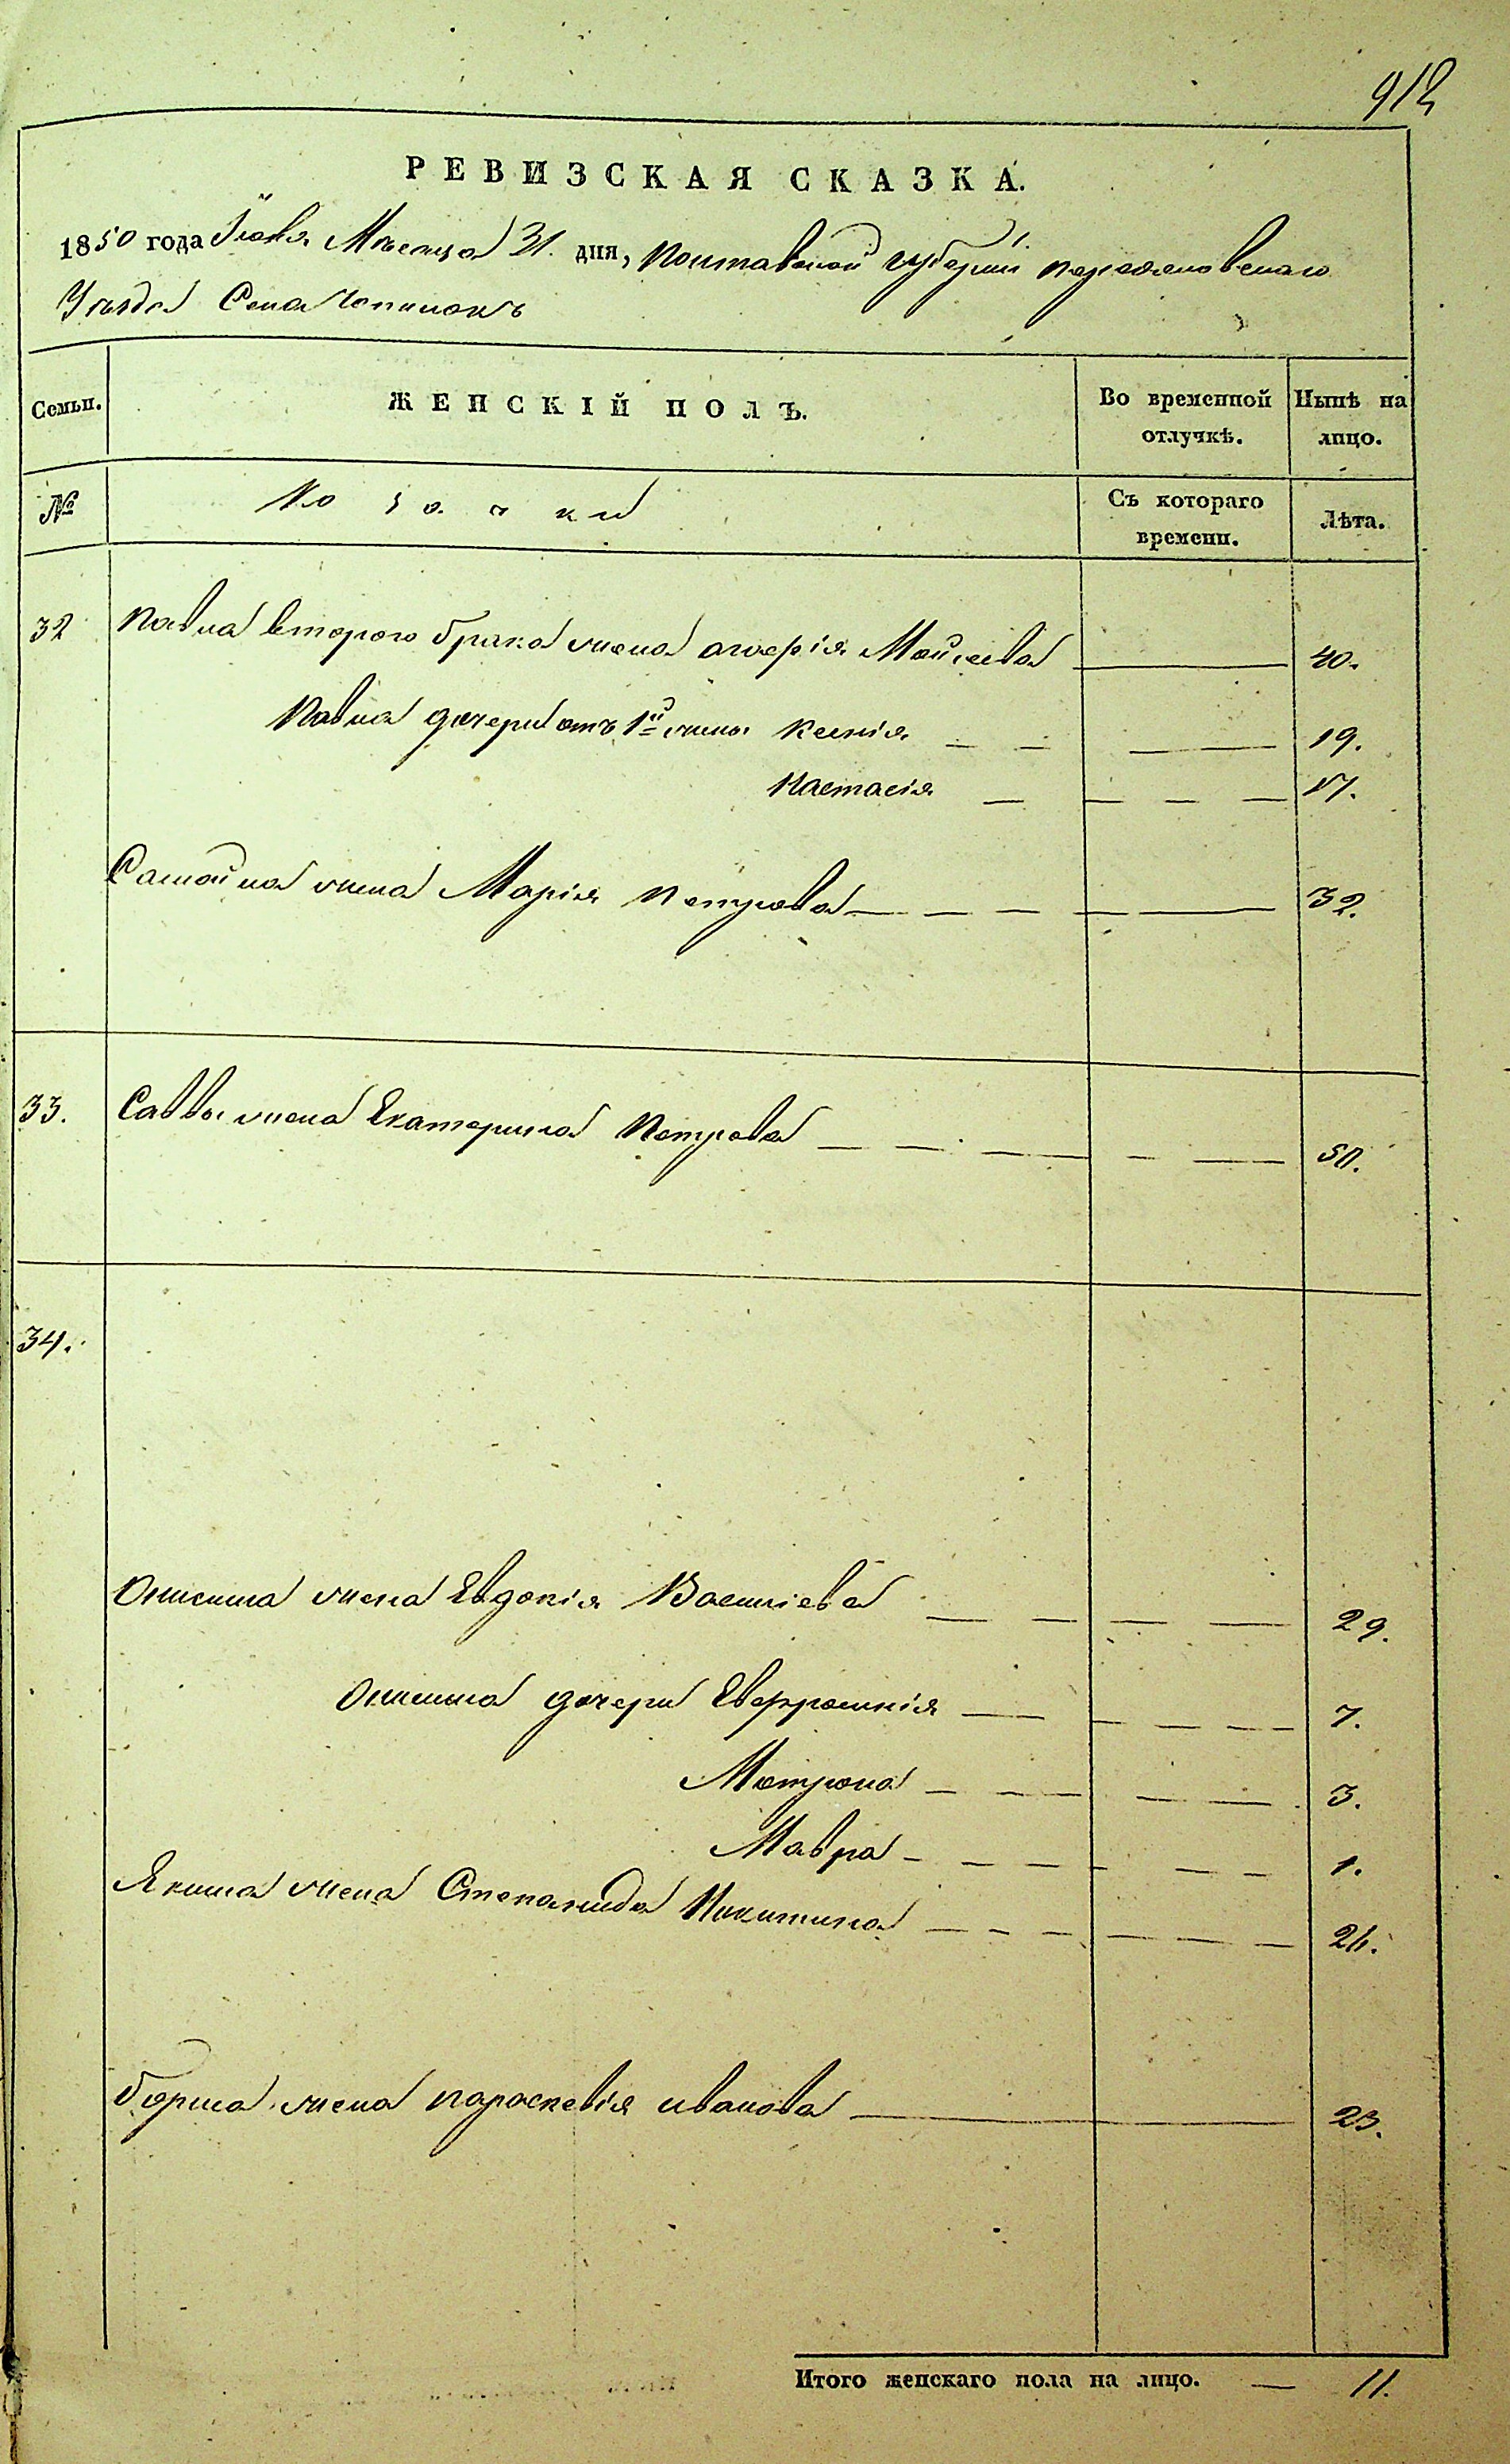 912
РЕВИЗСКАЯ СКАЗКА.
1850 года Іюля Мѣсяца 31. дня, Полтавской губерніи переяславскаго
Уѣзда Села Чопилокъ
Семьи. ЖЕНСКІЙ ПОЛЪ. Во временной отлучкѣ. Нынѣ на лицо.
№ Козачки Съ котораго времени. Лѣта.
32 Павла второго брака жена Моисеева 40.
Павла дочери отъ 1й жены Ксенія 19.
Настасія 17.
Самойла жена Марія Петрова 32.
33. Саввы жена Екатерина Петрова 50.
34.
Онисима жена Евдокія Василіева 29.
Онисима дочери Евфросинія 7.
Мотрона 3.
Мавра 1.
Якима жена Степанида Никитина 26.
жена параскевія иванова 23.
Итого женскаго пола на лицо. — 11.